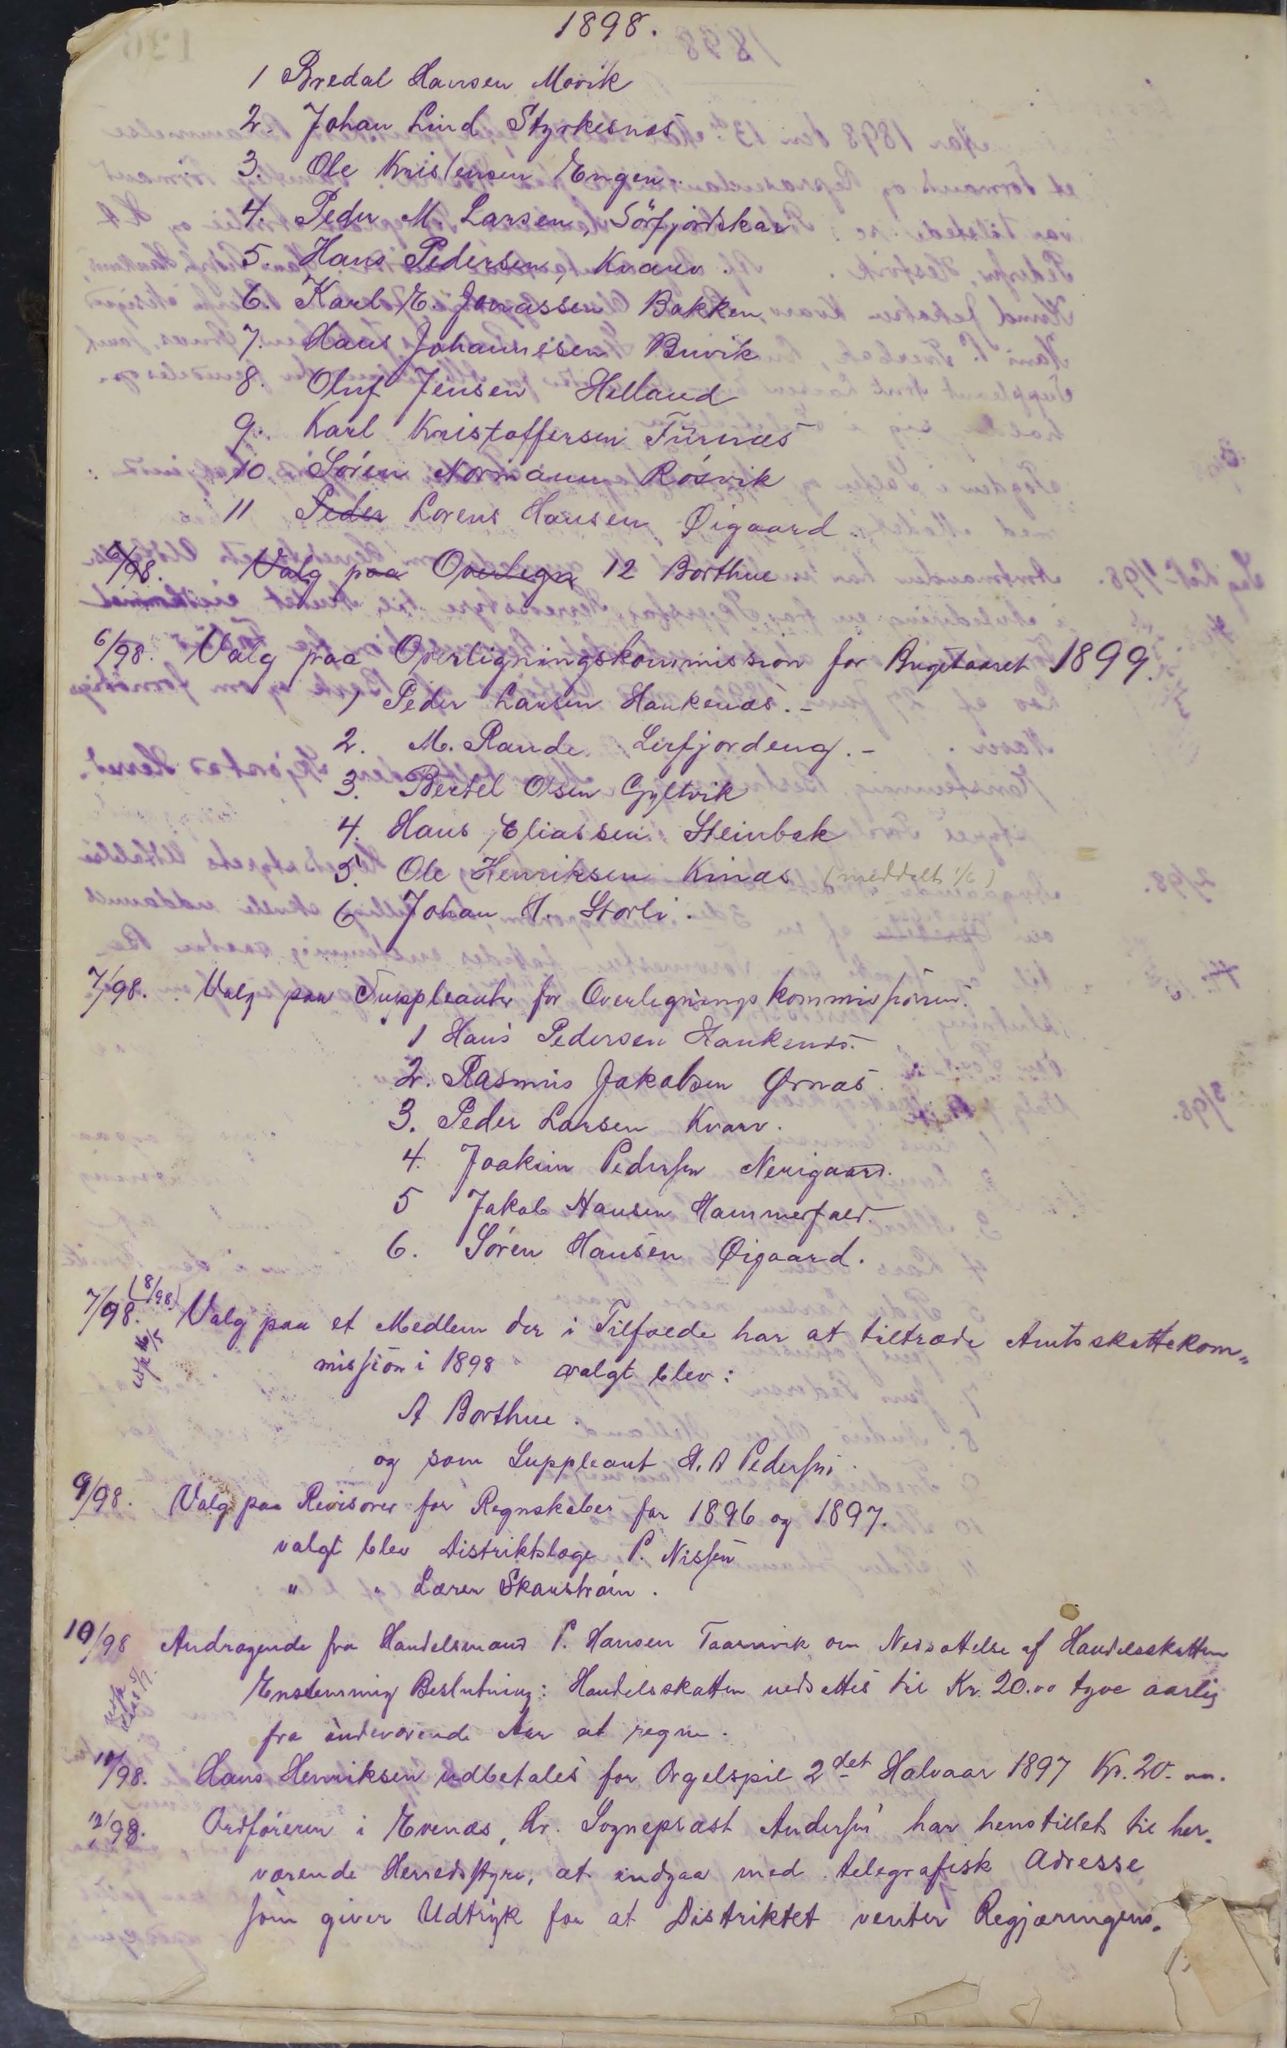 1898.
1 Bredal Hansen Movik
2. Johan Lind Styrkesnæs
3. Ole Kristensen Engen.
4. Peder M. Larsen, Sörfjordskar
5. Hans Pedersen, Kvarv.
6. Karl E. Jonassen Bakken
7. Hans Johannesen Buvik
8. Oluf Jensen Helland
9. Karl Kristoffersen Furnæs
10 Sören Normann Rösvik
11 Peder Lorens Hansen Øigaard.
6/98. Valg paa Overlegn 12 Borthue
6/98. Valg paa Overligningskommission for Bugetaaret 1899.
1 Peder Larsen Haukenæs. -
2. M. Rande, Leirfjordeng. -
3. Bertel Olsen Gyltvik
4. Hans Eliassen Steinbak
5. Ole Henriksen Kinæs (meddelt 1/6)
6. Johan H. Storli.
7/98. Valg paa Suppleanter for Overlignings kommissionen.
1 Hans Pedersen Haukenæs.
2. Rasmus Jakobsen Ørnæs
3. Peder Larsen Kvarv.
4. Joakim Pedersen Nerigaard.
5 Jakob Hansen Hammerfald.
6. Sören Hansen Øigaard.
7/98. (8/98) Valg paa et Medlem der i Tilfælde har at tiltræde Amtsskattekom„
mission i 1898 valgt blev:
A Borthue.
og som Suppleant H. A Pedersen.
9/98. Valg paa Revisorer for Regnskaber for 1896 og 1897.
valgt blev Distriktslæge P. Nissen
" " Lærer Skanström.
10/98 Andragende fra Handelsmand P. Hansen Taarnvik om Nedsættelse af Handelsskatten
Enstemmig Beslutning: Handelsskatten nedsættes til Kr. 20.00 tyve aarlig
fra indeværende Aar at regne.
11/98. Hans Henriksen udbetales for Orgelspil 2det Halvaar 1897 Kr. 20.
12/98. Ordföreren i Evenæs, Hr. Sognepræst Andersen har henstillet til her„
værende Herredsstyre, at indgaa med telegrafisk Adresse
som giver Udtryk for at Distriktet venter Regjæringens„